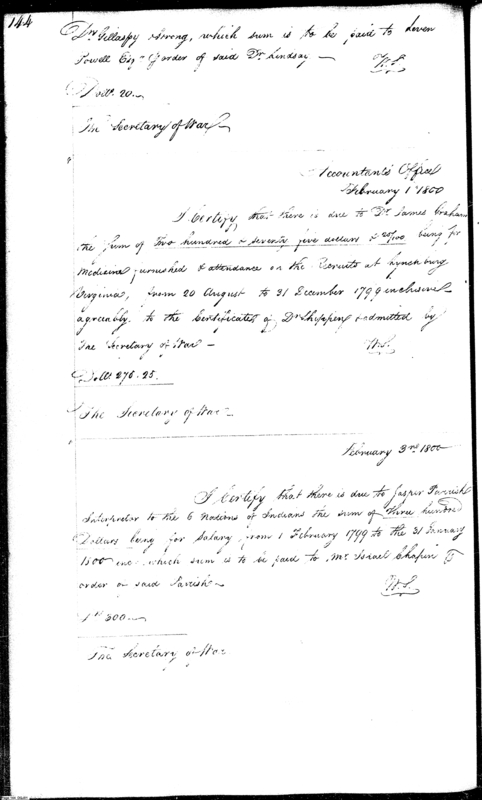 144
Dr. Gillaspy & Strong, which sum is to be paid to Leven
Powell Esqr. order of said Dr. Lindsay
W.S.
Dolls. 20.
The Secretary of War
Accountants Office
February 1st 1800
I Certify, that there is due to Dr. James Graham
the sum of two hundred & seventy five dollars & 25/100 being for
Medicine furnished & attendance on the Recruits at Lynchburg
Virginia, from 20 August to 31 December 1799 inclusive
agreeably to the Certificate of Dr. Shippen & admitted by
The Secretary of War
W.S.
Dolls. 275.25.
The Secretary of War
February 3rd 1800
I Certify that there is due to Jasper Parrish
Interpreter to the 6 Nations of Indians the sum of three hundred
Dollars being for Salary from 1 February 1799 to the 31 January
1800 inc. which sum is to be paid to Mr. Israel Chapin
order of said Parrish
W.S.
300
The Secretary of War